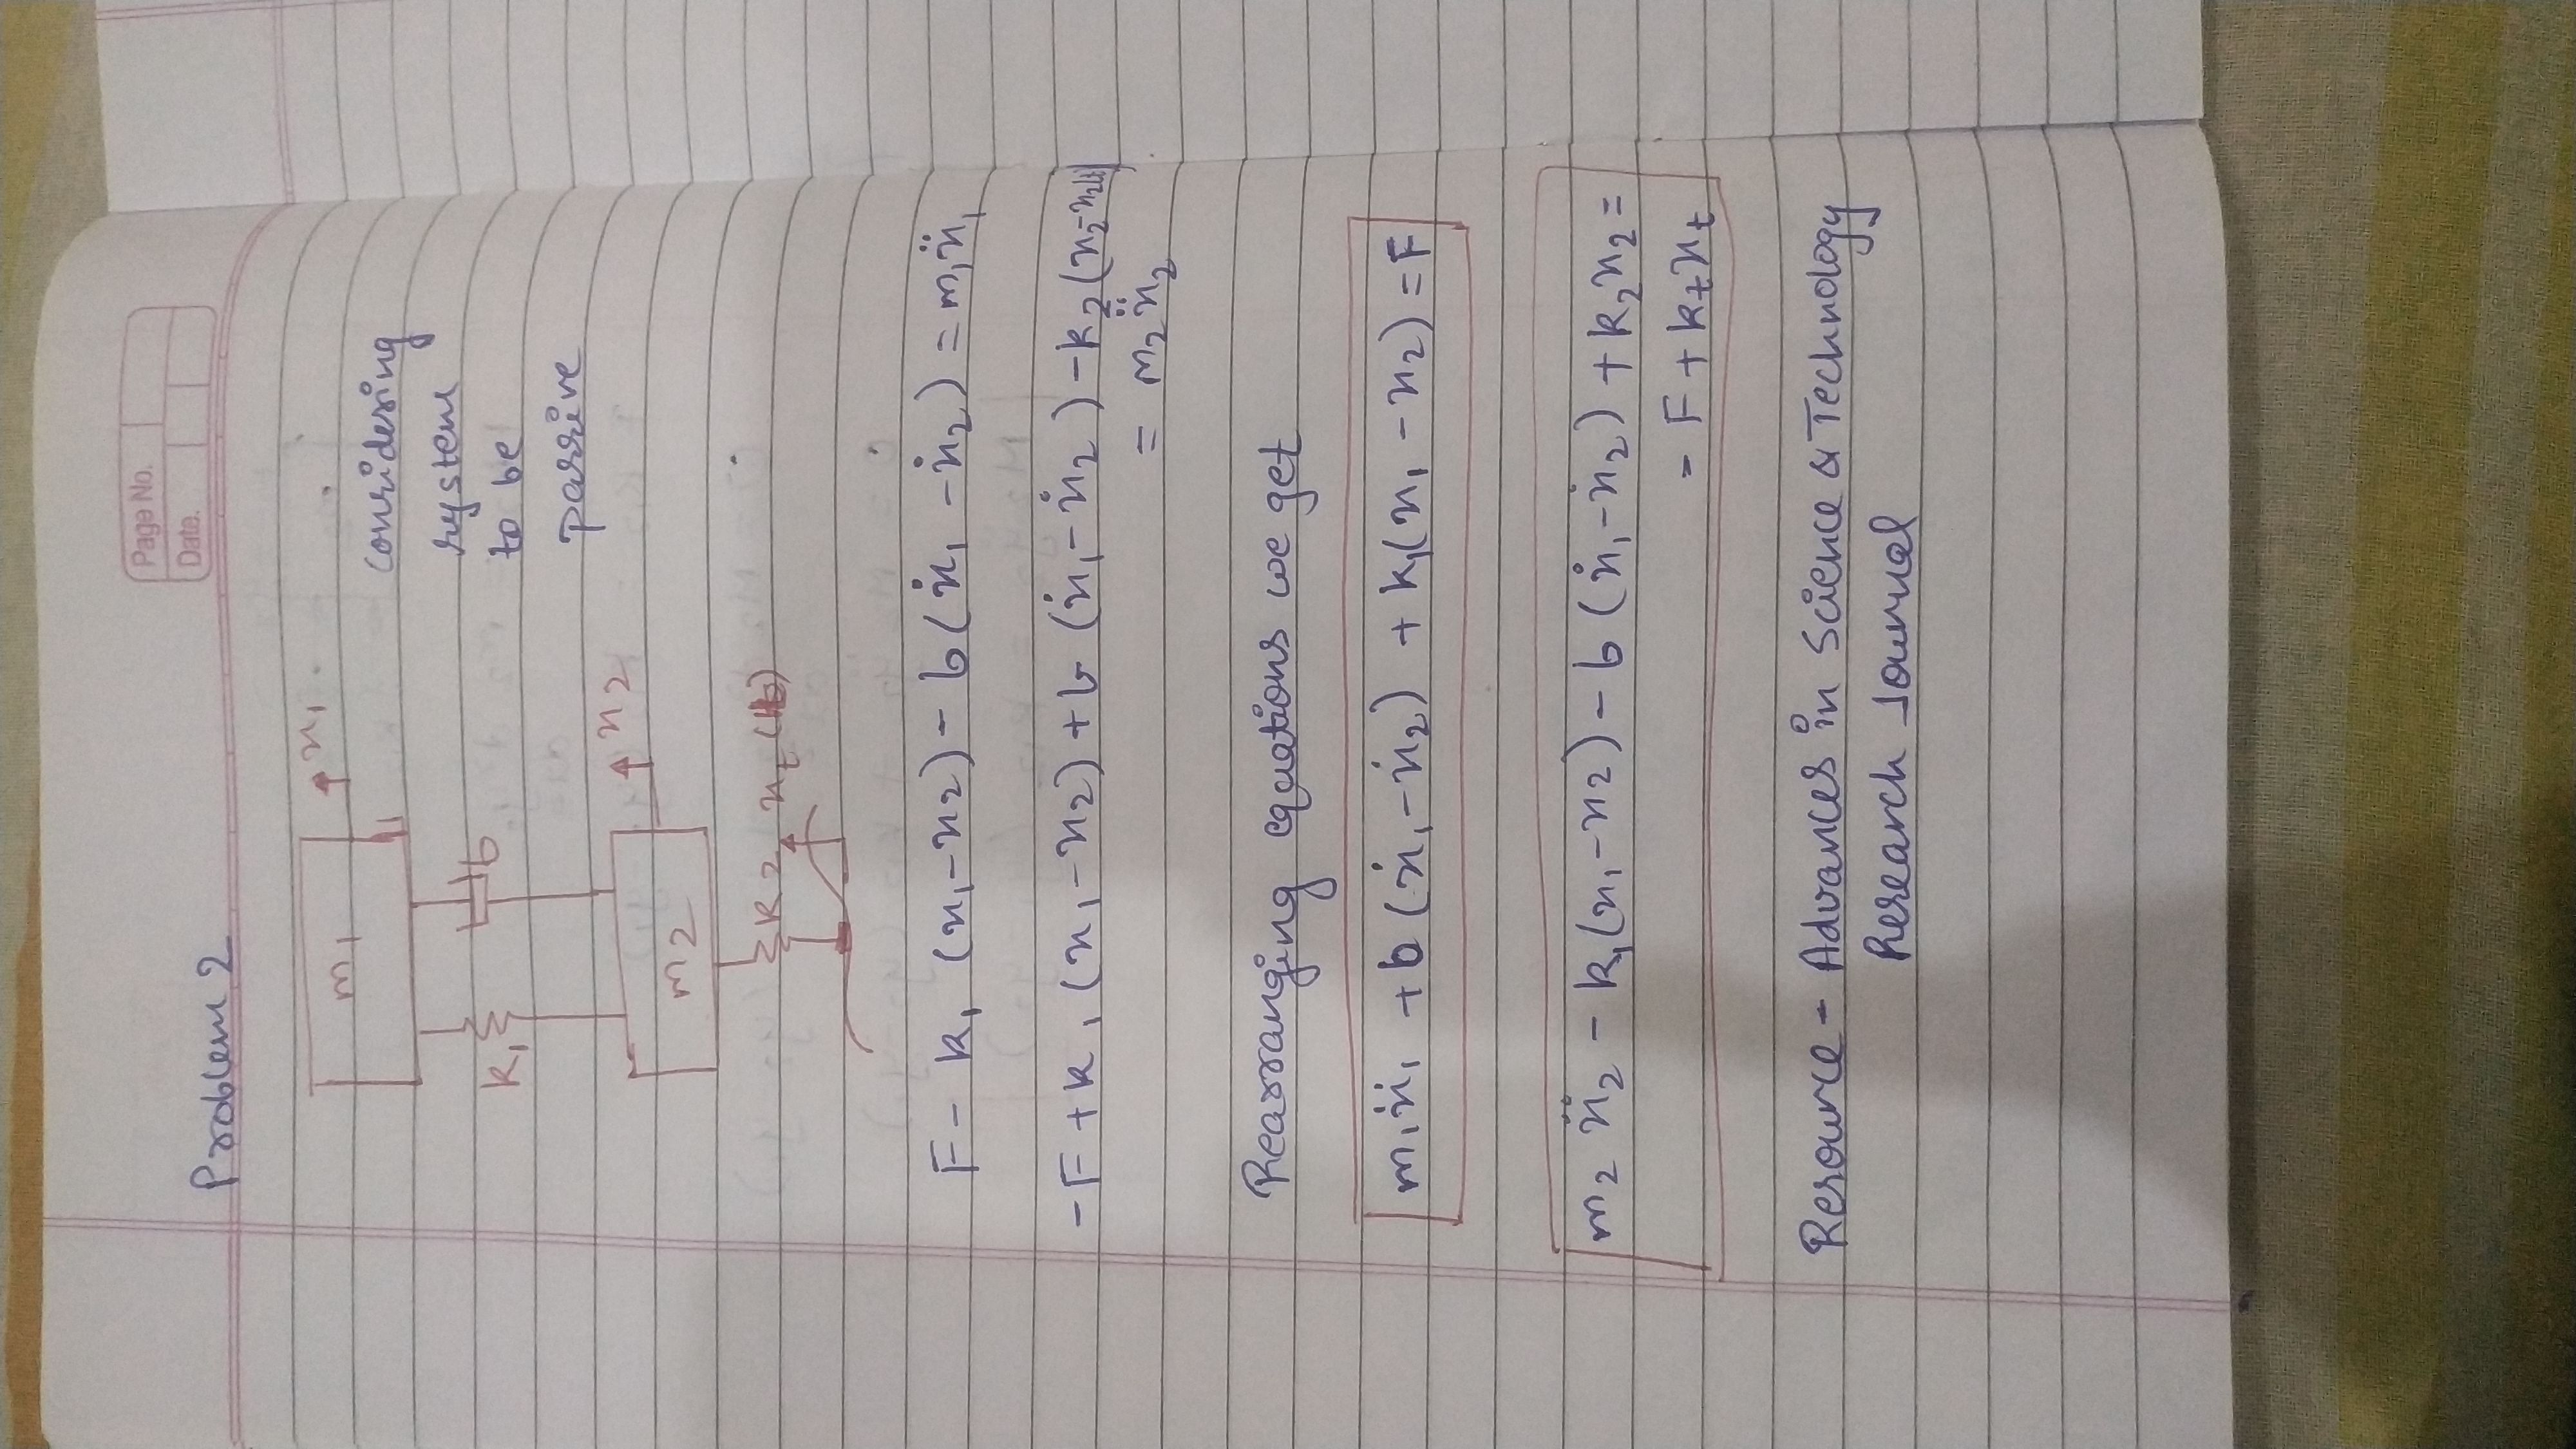 Page No.
Date.
Problem 2
m1
x1
considering
system
to be
passive
k1
b
x2
m2
k2
xt
F - k1 (x1 - x2) - b (ẋ1 - ẋ2) = m1ẍ1
-F + k1 (x1 - x2) + b (ẋ1 - ẋ2) - k2 (x2 -
= m2 ẍ2
Rearranging equations we get
m1ẍ1 + b (ẋ1 - ẋ2) + k1(x1 - x2) = F
m2 ẍ2 - k1(x1 - x2) - b (ẋ1 - ẋ2) + k2x2 =
- F + ktxt
Resource - Advances in Science & Technology
Research Journal